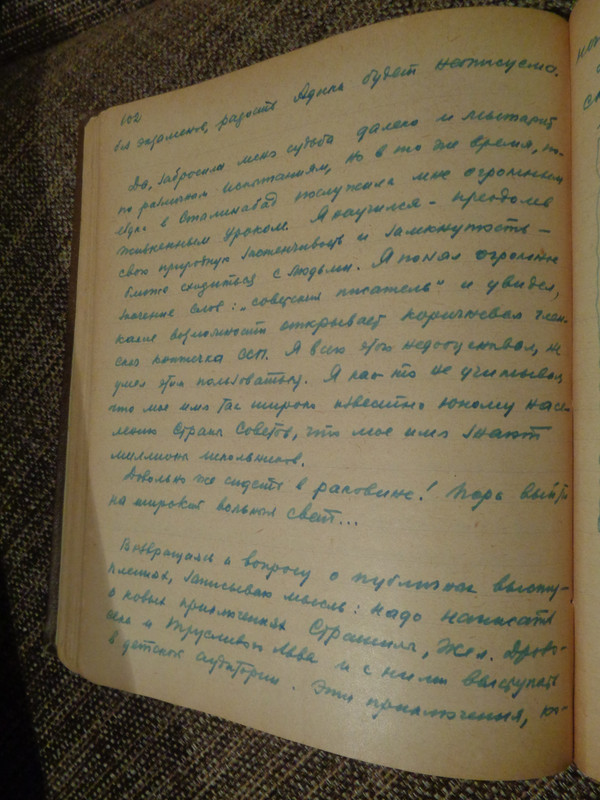 102
вых экзаменов, радость Адика будет неописуема.
Да, забросила меня судьба далеко и мытарит
по различным испытаниям, но в то же время, по-
ездка в Сталинабад послужила мне огромным
жизненным уроком. Я научился – преодолев
свою природную застенчивость и замкнутость –
ближе сходиться с людьми. Я понял огромное
значение слов: „советский писатель" и увидел,
какие возможности открывает коричневая член-
ская книжечка ССП. Я всё это недооценивал, не
умел этим пользоваться. Я как-то не учитывал,
что мое имя так широко известно юному насе-
лению Страны Советов, что мое имя знают
миллионы школьников.
Довольно же сидеть в раковине! Пора выйти
на широкий вольный свет...
Возвращаясь к вопросу о публичных выступ-
лениях, записываю мысль: надо написать
о новых приключениях Страшила, Жел. Дрово-
сека и Трусливого Льва и с ними выступать
в детской аудитории. Эти приключения,